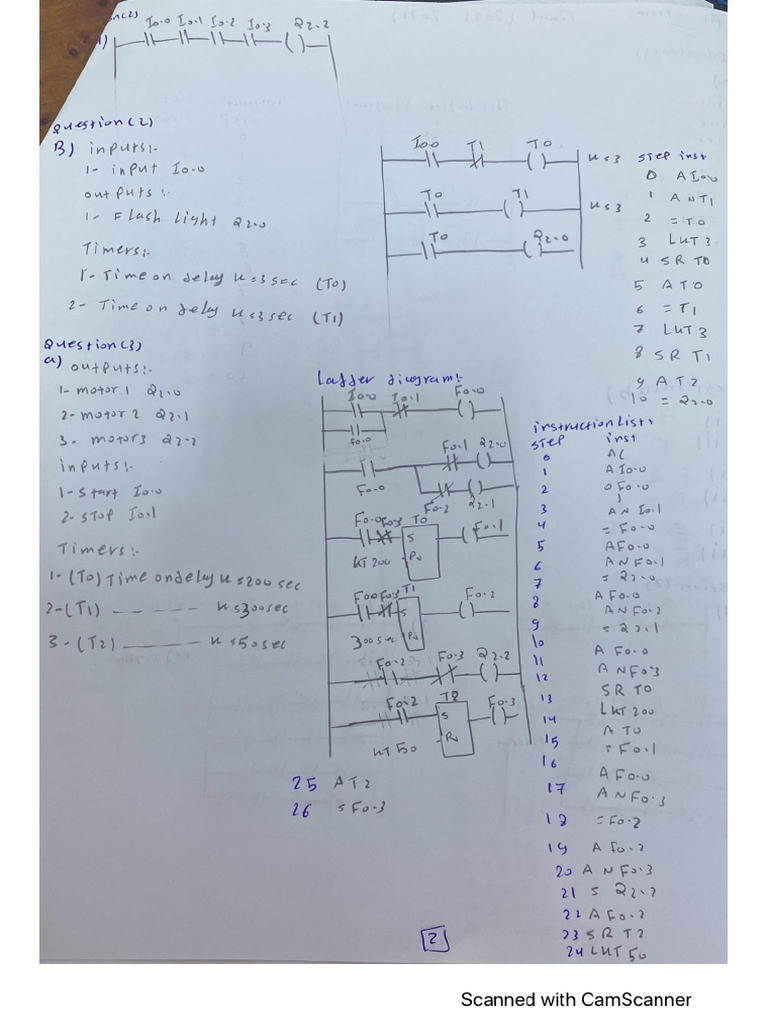 I0.0 I0.1 I0.2 I0.3 Q2.2
Question(2)
B) inputs:-
1- input I0.0
outputs:-
1- Flash light Q2.0
Timers:-
1- Time on delay K=3sec (T0)
2- Time on delay K=3sec (T1)
I0.0 T1 T0
K=3
T0 T1
K=3
T0 Q2.0
step inst
0 A I0.0
1 AN T1
2 = T0
3 LKT 3
4 SR T0
5 A T0
6 = T1
7 LKT 3
8 SR T1
9 A T2
10 = Q2.0
Question(3)
a) outputs:-
1- motor 1 Q2.0
2- motor 2 Q2.1
3- motor3 Q2.2
inputs:-
1- Start I0.0
2- STOP I0.1
Timers:-
1- (T0) Time ondelay K=200sec
2- (T1) ------ K=300sec
3- (T2) ------ K=50sec
Ladder diagram:-
I0.0 I0.1 F0.0
F0.0
F0.1 Q2.0
F0.0
F0.2 Q2.1
F0.0 F0.3 T0 F0.1
S
KT 200 Pv
F0.0 F0.3 T1 F0.2
S
300sec Pv
F0.2 F0.3 Q2.2
F0.2 T2 F0.3
S
KT 50 Pv
instruction List:
step inst
0 A(
1 A I0.0
2 O F0.0
3 )
AN I0.1
4 = F0.0
5 A F0.0
6 AN F0.1
7 = Q2.0
8 A F0.0
9 AN F0.2
= Q2.1
10
11 A F0.0
12 AN F0.3
13 SR T0
14 LKT 200
15 A T0
= F0.1
16
A F0.0
17 AN F0.3
18 = F0.2
19 A F0.2
20 AN F0.3
21 = Q2.2
22 A F0.2
23 SR T2
24 LKT 50
25 A T2
26 = F0.3
2
Scanned with CamScanner